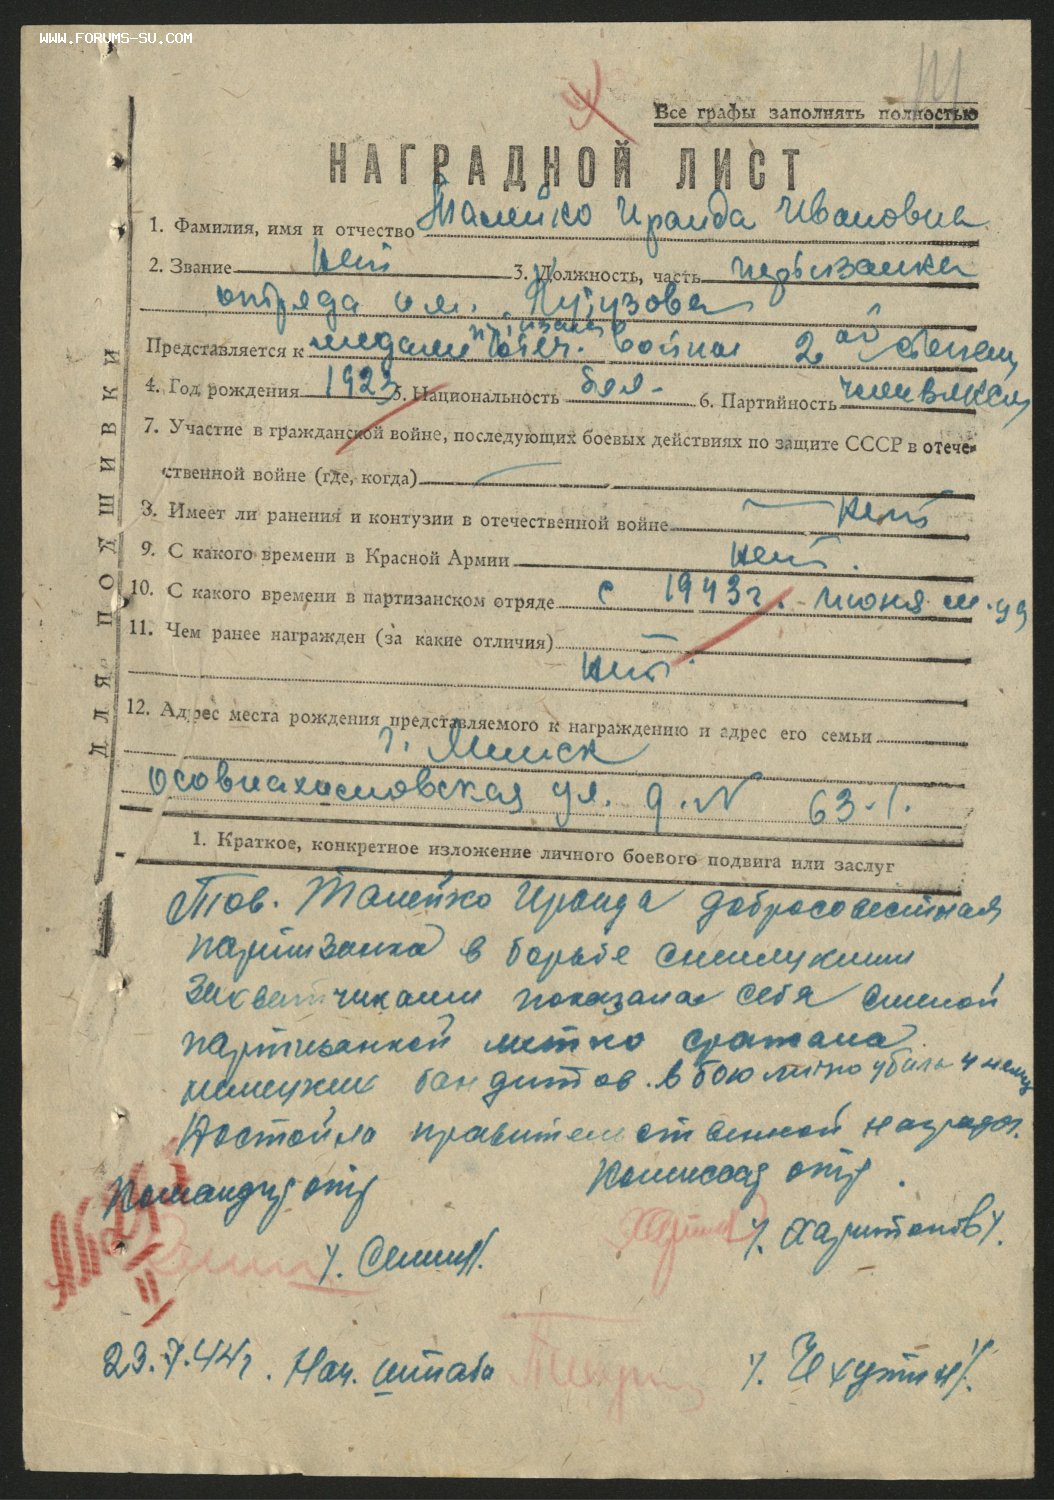 WWW.FORUMS-SU.COM
Все графы заполнять полностью
НАГРАДНОЙ ЛИСТ
1. Фамилия, имя и отчество Талейко Ираида Ивановна
2. Звание нет 3. Должность, часть партизанка
отряда им. Кутузова
Представляется к медали "Партизану Отеч. войны 2ой степени
4. Год рождения 1923 5. Национальность бел- 6. Партийность член ВЛКСМ
7. Участие в гражданской войне, последующих боевых действиях по защите СССР в отече-
ственной войне (где, когда)
8. Имеет ли ранения и контузии в отечественной войне нет
9. С какого времени в Красной Армии нет.
10. С какого времени в партизанском отряде с 1943г. июня м-ца
11. Чем ранее награжден (за какие отличия)
нет.
12. Адрес места рождения представляемого к награждению и адрес его семьи
г. Минск
осовиахимовская ул. д. N 63-1.
1. Краткое, конкретное изложение личного боевого подвига или заслуг
Тов. Талейко Ираида добросовестная
партизанка в борьбе с немецкими
захватчиками показала себя смелой
партизанкой метко сражала
немецких бандитов. в бою лично убила 4 немц
Достойна правительственной награды.
Командир отр Комиссар отр.
/. Сенин/. /. Харитонов/.
23.7.44г. Нач. штаба
ДЛЯ ПОДШИВКИ